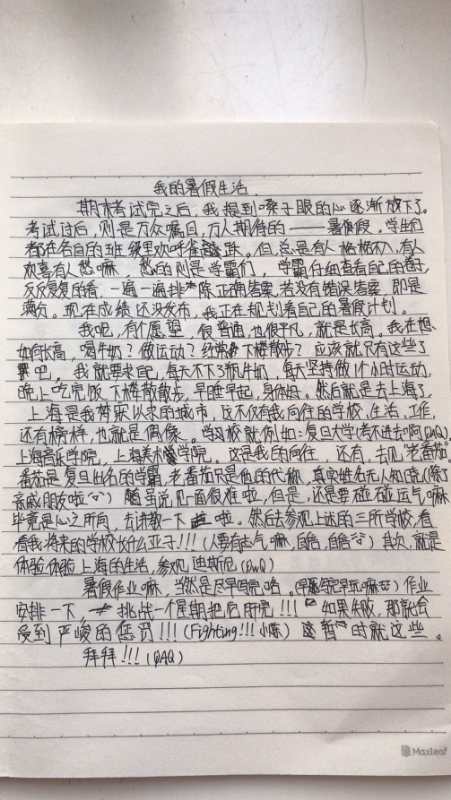 我的暑假生活
期末考试完之后,我提到嗓子眼的心逐渐放下了。
考试过后,则是万众瞩目,万人期待的——暑假,学生们
都在各自的班级里欢呼雀跃。但,总是有人格格不入,有人
欢喜有人愁嘛,愁的则是学霸们,学霸仔细查看自己的卷子,
反反复复的看,一遍一遍排除正确答案,若没有错误答案,即是
满分。现在成绩还没发布,我正在规划着自己的暑假计划。
我呢,有个愿望,很普通也很平凡,就是长高。我在想,
如何长高,喝牛奶?做运动?经常下楼散步?应该就只有这些了
吧,我就要求自己,每天不下3瓶牛奶,每天坚持做1个小时运动,
晚上吃完饭下楼散散步,早睡早起,身体好。然后就是去上海了,
上海是我梦寐以求的城市,这不仅有我向往的学校,生活,工作,
还有榜样,也就是偶像。学习校就例如:复旦大学(考不进去啊QAQ),
上海音乐学院,上海美术学院,这是我的向往 还有,去见老番茄,
番茄是复旦出名的学霸,老番茄只是他的代称,真实姓名无人知晓,(除了
亲戚朋友啦)虽说见一面很难啦,但是,还是要碰碰运气嘛
毕竟是心之所向,去请教一下啦。然后去参观上述的三所学校,看
看我将来的学校长什么亚子!!!(人要有志气嘛,自信,自信)其次,就是
体验体验上海的生活,参观迪斯尼(QwQ)
暑假作业嘛,当然是尽早写完哈。作业
安排一下,挑战一个星期把它写完!!!如果失败,那就会
受到严峻的惩罚!!!(Fighting!!!小陈)暂时就这些。
拜拜!!!(QAQ)
Maxleaf